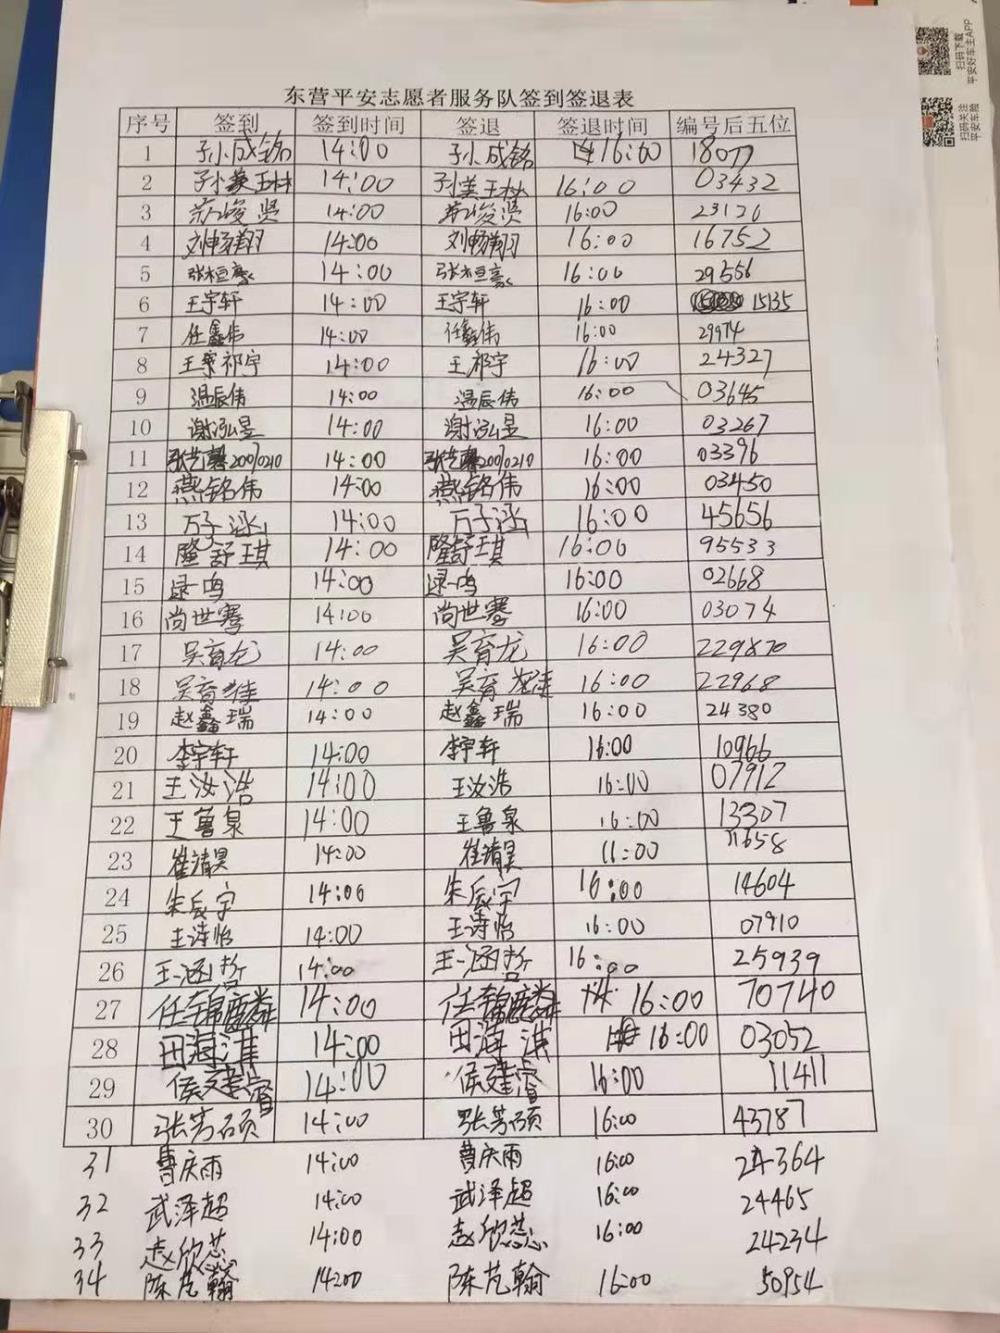 扫码下载
平安好车主APP
扫码关注
平安车险
东营平安志愿者服务队签到签退表
序号 签到 签到时间 签退 签退时间 编号后五位
1 孙成铭 14:00 孙成铭 16:00 18077
2 14:00 16:00 03432
3 苏峻贤 14:00 苏峻贤 16:00 23126
4 刘畅翔 14:00 刘畅翔 16:00 16752
5 张桓豪 14:00 张桓豪 16:00 29556
6 王宇轩 14:00 王宇轩 16:00 15135
7 任鑫伟 14:00 任鑫伟 16:00 29974
8 王祁宇 14:00 王祁宇 16:00 24327
9 温辰伟 14:00 温辰伟 16:00 03645
10 谢泓昱 14:00 谢泓昱 16:00 03267
11 张艺馨20070210 14:00 张艺馨20070210 16:00 03396
12 燕铭伟 14:00 燕铭伟 16:00 03450
13 万子涵 14:00 万子涵 16:00 45656
14 隆舒琪 14:00 隆舒琪 16:00 95533
15 逯一鸣 14:00 逯一鸣 16:00 02668
16 尚世骞 14:00 尚世骞 16:00 03074
17 吴育龙 14:00 吴育龙 16:00 229870
18 吴育 14:00 吴育 16:00 22968
19 赵鑫瑞 14:00 赵鑫瑞 16:00 24380
20 李宇轩 14:00 李宇轩 16:00 10966
21 王汝浩 14:00 王汝浩 16:00 07912
22 王鲁泉 14:00 王鲁泉 16:00 13307
23 崔靖昊 14:00 崔靖昊 16:00 11658
24 朱辰宇 14:00 朱辰宇 16:00 14604
25 王诗怡 14:00 王诗怡 16:00 07910
26 王一涵哲 14:00 王一涵哲 16:00 25939
27 任锦麟 14:00 任锦麟 16:00 70740
28 田海淇 14:00 田海淇 16:00 03052
29 侯建睿 14:00 侯建睿 16:00 11411
30 张芳硕 14:00 张芳硕 16:00 43787
31 曹庆雨 14:00 曹庆雨 16:00 24364
32 武泽超 14:00 武泽超 16:00 24465
33 赵欣蕊 14:00 赵欣蕊 16:00 24234
34 陈芃翰 14:00 陈芃翰 16:00 50954